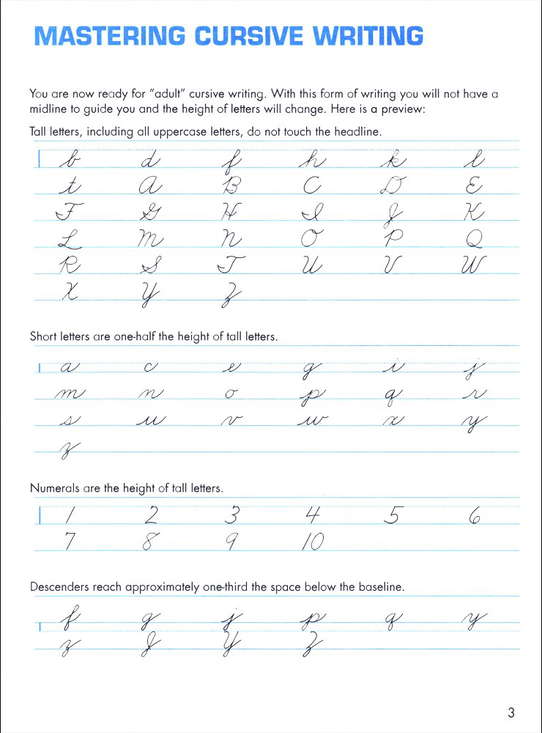 MASTERING CURSIVE WRITING
You are now ready for “adult” cursive writing. With this form of writing you will not have a
midline to guide you and the height of letters will change. Here is a preview:
Tall letters, including all uppercase letters, do not touch the headline.
b d f h k l
t A B C D E
F G H I J K
L M N O P Q
R S T U V W
X Y Z
Short letters are one-half the height of tall letters.
a c e g i j
m n o p q r
s u v w x y
z
Numerals are the height of tall letters.
1 2 3 4 5 6
7 8 9 10
Descenders reach approximately one-third the space below the baseline.
f g j p q y
z J Y Z
3